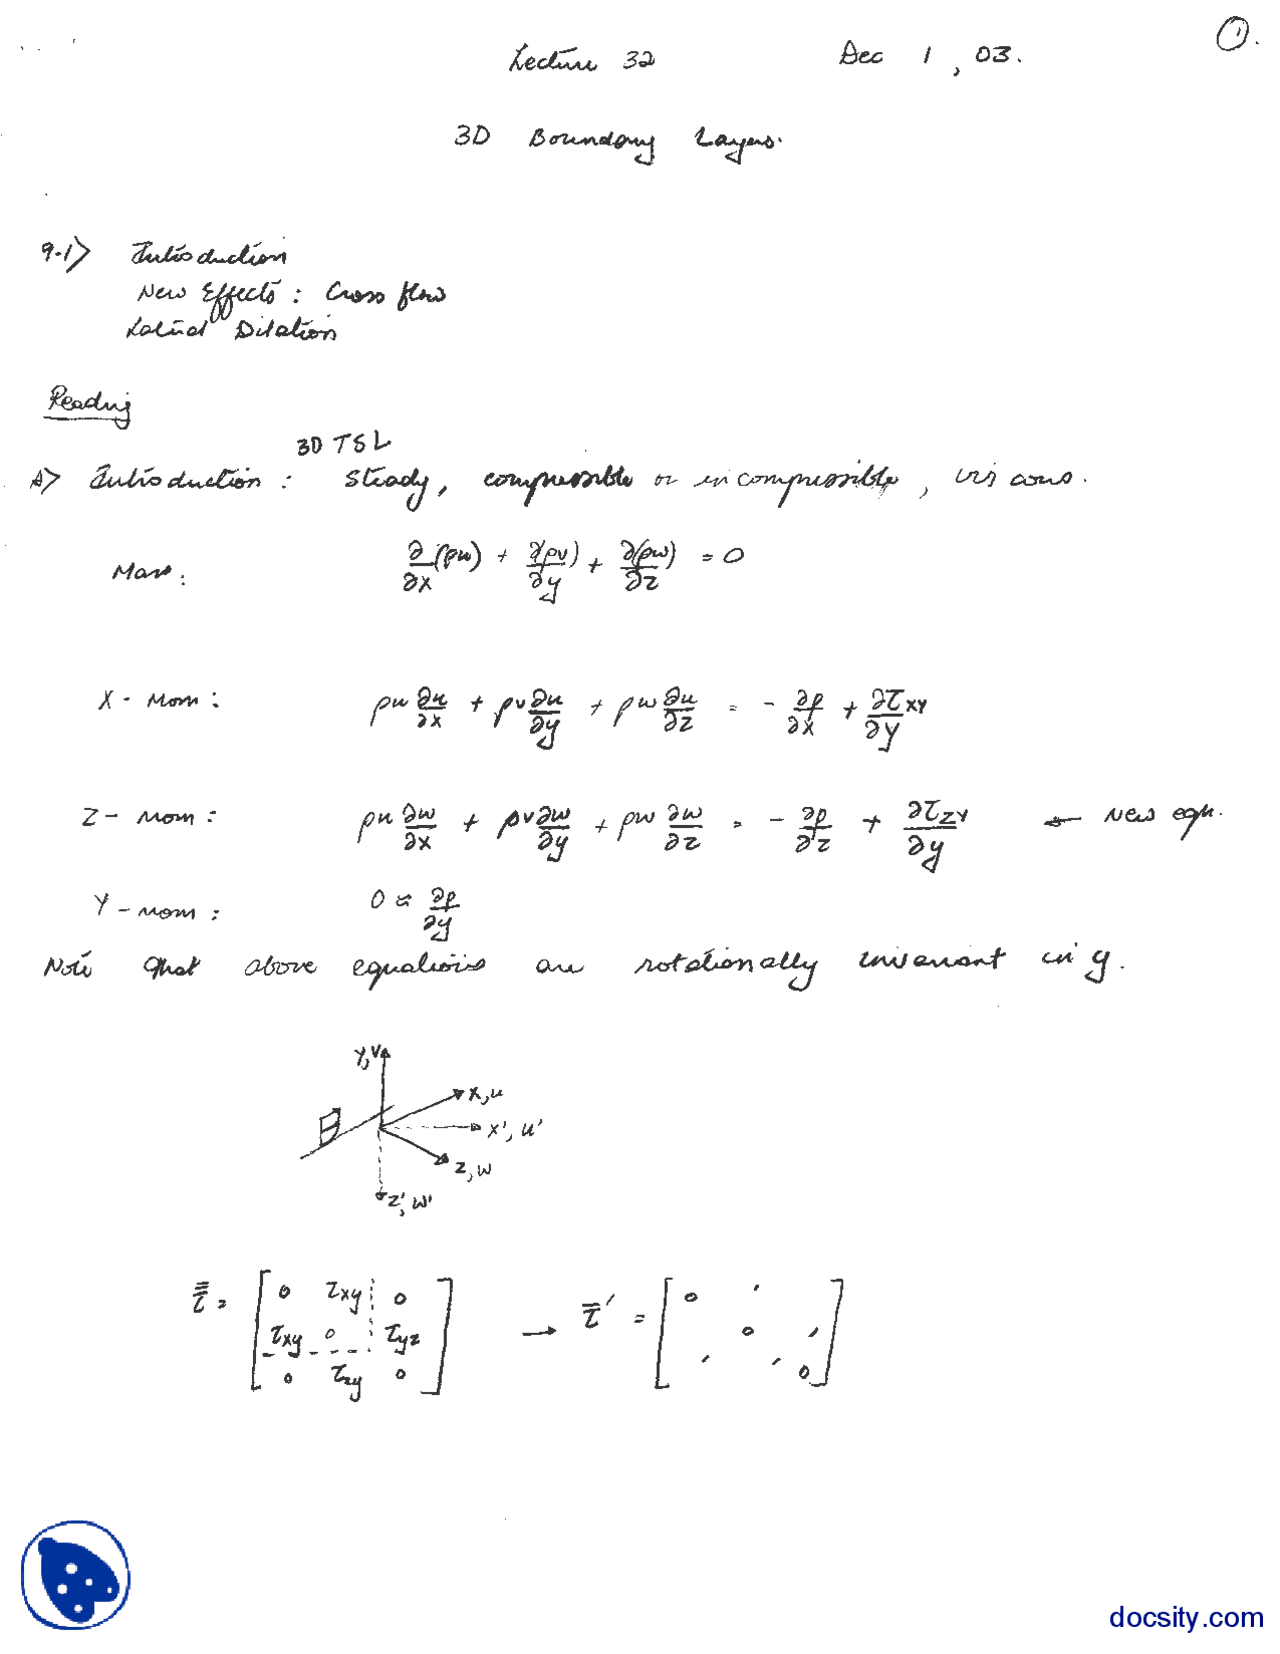 ①.
Lecture 32 Dec 1, 03.
3D Boundary Layers.
9.1> Introduction
New Effects: Cross flow
Lateral Dilation
Reading
3D TSL
A> Introduction: Steady, compressible or incompressible, viscous.
Mass: ∂/∂x (ρu) + ∂(ρv)/∂y + ∂(ρw)/∂z = 0
X-mom: ρu ∂u/∂x + ρv ∂u/∂y + ρw ∂u/∂z = - ∂p/∂x + ∂τxy/∂y
Z-mom: ρu ∂w/∂x + ρv ∂w/∂y + ρw ∂w/∂z = - ∂p/∂z + ∂τzy/∂y ← New eqn.
Y-mom: 0 ≈ ∂p/∂y
Note that above equations are rotationally invariant in y.
Y,V
x,u
x',u'
z,w
z',w'
τ̿ = [ 0 τxy 0 → τ̿' = [ 0 '
τxy 0 τyz 0 '
0 τzy 0 ] ' ' 0 ]
docsity.com